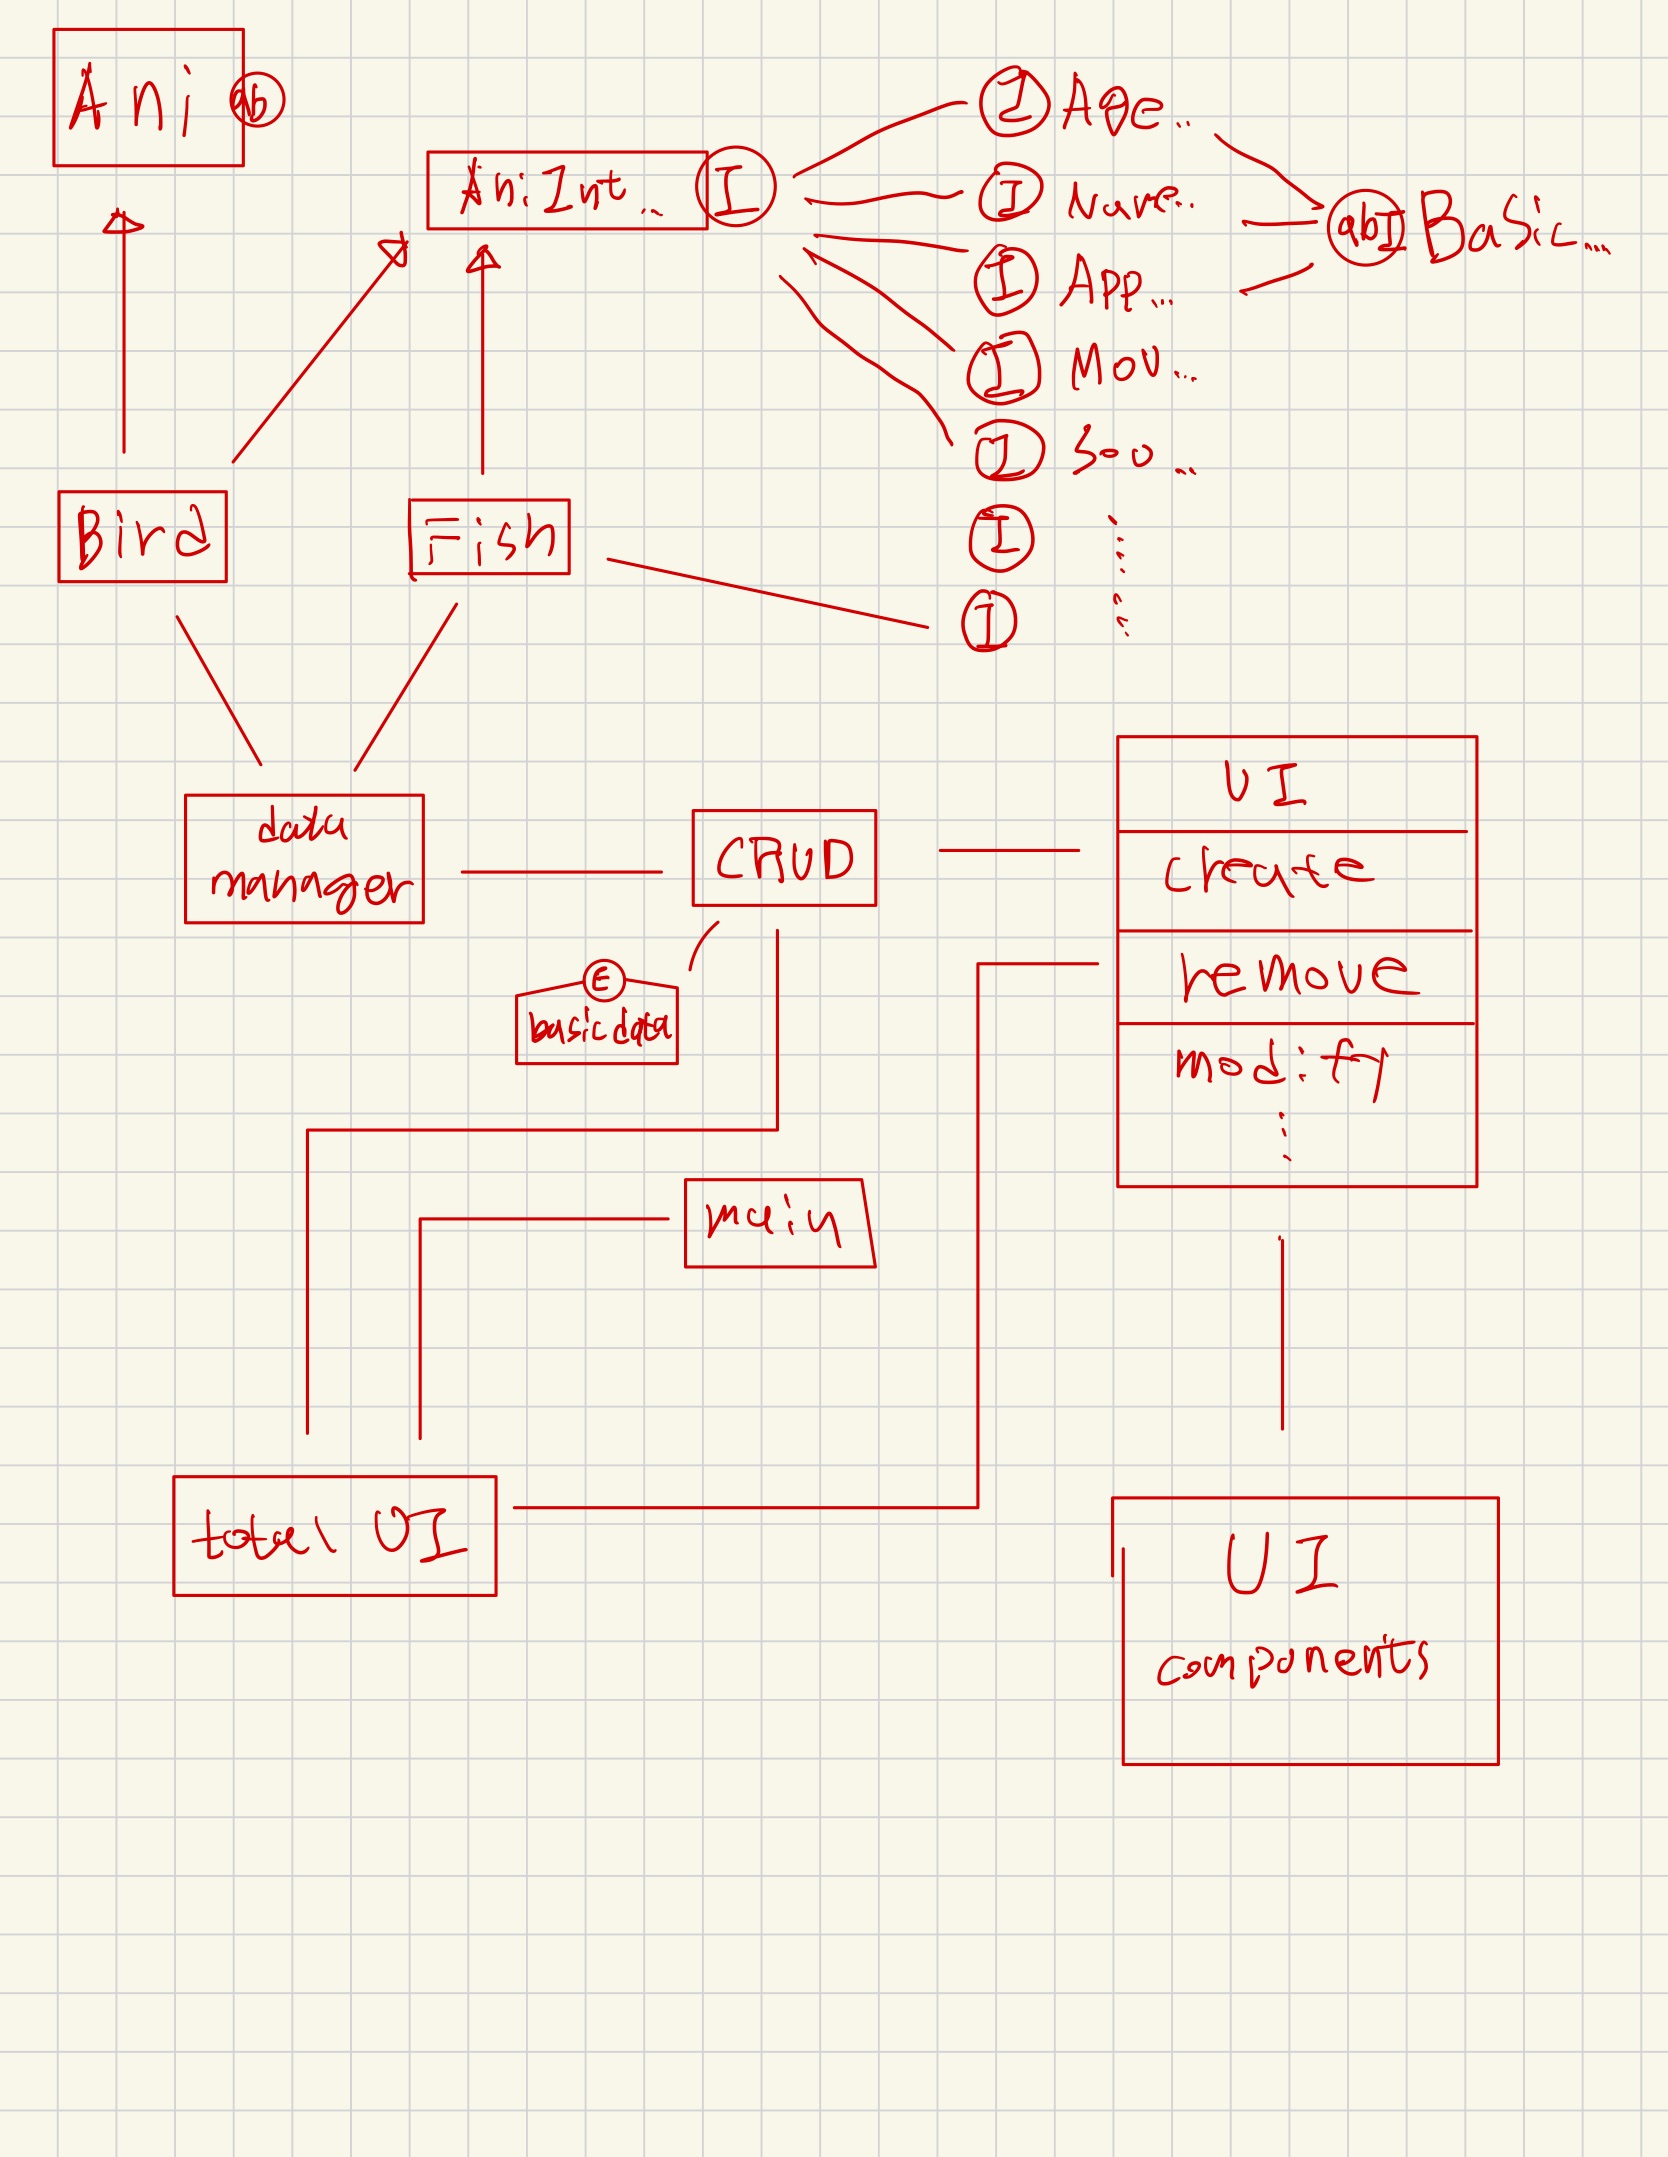 Ani ab
Ani Int... I
I Age..
I Name..
I App...
I Mov...
I Sou...
I
I
abI Basic...
Bird
Fish
data
manager
CRUD
E
basic data
UI
create
remove
modify
main
total UI
UI
components